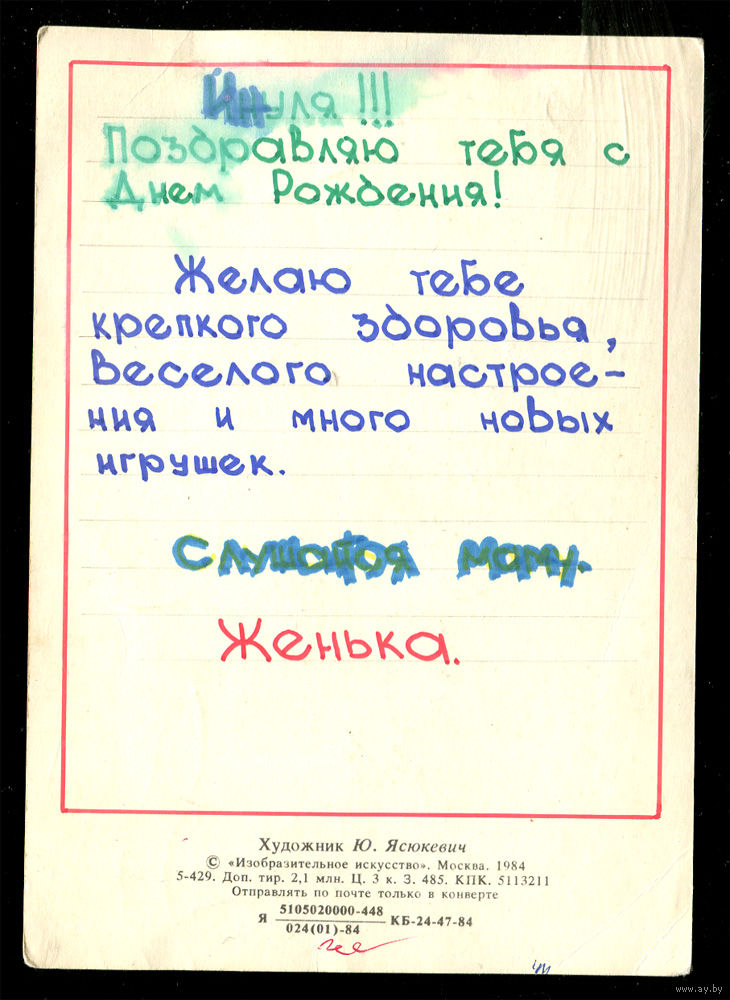 Инуля !!!
Поздравляю тебя с
Днем Рождения!
Желаю тебе
крепкого здоровья,
веселого настрое-
ния и много новых
игрушек.
Слушайся маму.
Женька.
Художник Ю. Ясюкевич
© «Изобразительное искусство». Москва. 1984
5-429. Доп. тир. 2,1 млн. Ц. 3 к. З. 485. КПК. 5113211
Отправлять по почте только в конверте
Я 5105020000-448 КБ-24-47-84
024(01)-84
www.ay.by